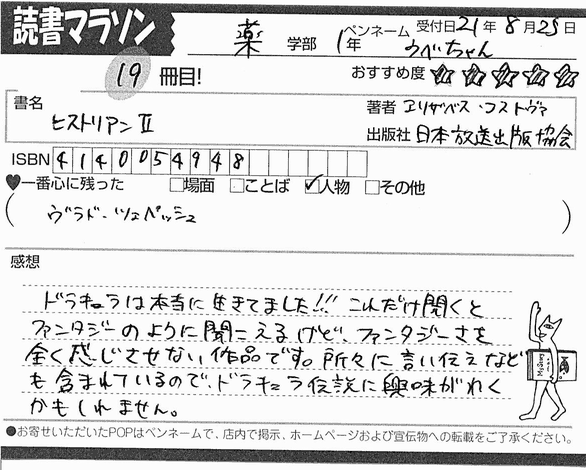 読書マラソン
薬 学部 1年 ペンネーム うべちゃん 受付日21年8月25日
19 冊目!
おすすめ度 ☆☆☆☆☆
書名
ヒストリアンⅡ
著者 エリザベス・コストヴァ
出版社 日本放送出版協会
ISBN 4140054948
♥一番心に残った □場面 □ことば ☑人物 □その他
(ヴラド・ツェペッシュ)
感想
ドラキュラは本当に生きてました!!! これだけ聞くと
ファンタジーのように聞こえるけど、ファンタジーさを
全く感じさせない作品です。所々に言い伝えなど
も含まれているので、ドラキュラ伝説に興味がわく
かもしれません。
●お寄せいただいたPOPはペンネームで、店内で掲示、ホームページおよび宣伝物への転載をご了承ください。